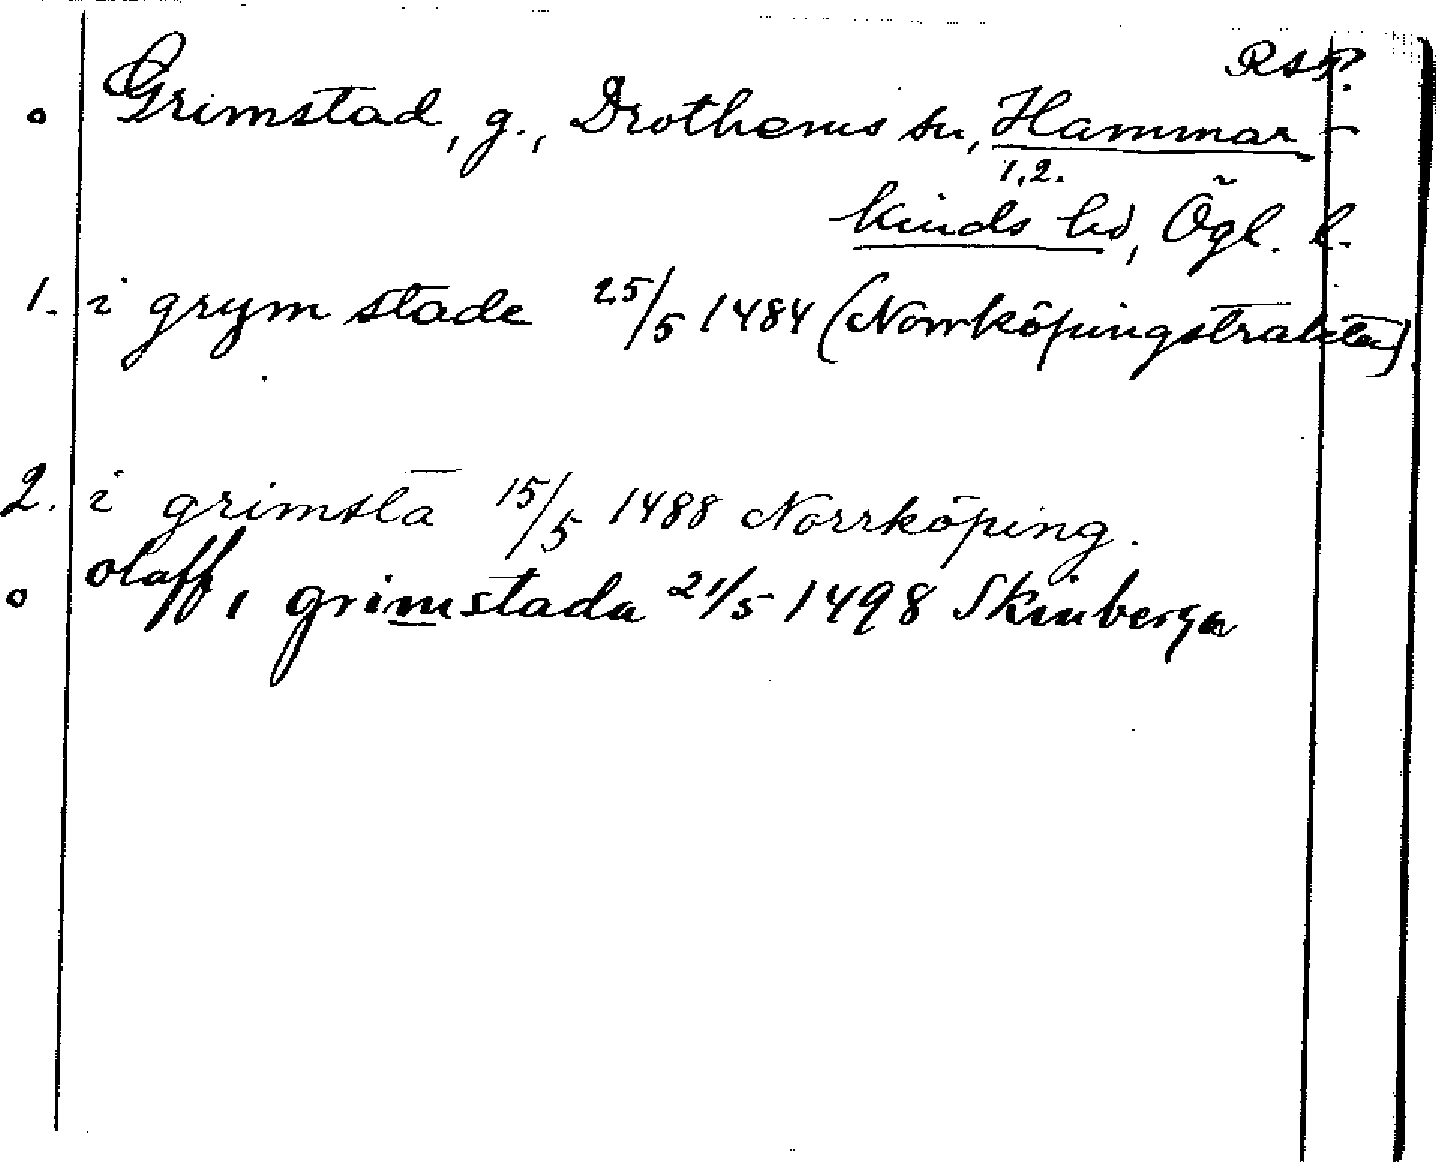 Rsp.
o Grimstad, g., Drothems sn, Hammar-
1,2.
kinds hd, Ögl. l.
1. i grym stade 25/5 1484 (Norrköpingstrakten)
2. i grimsta 15/5 1488 Norrköping.
o olaff i grimstada 21/5 1498 Skinberga